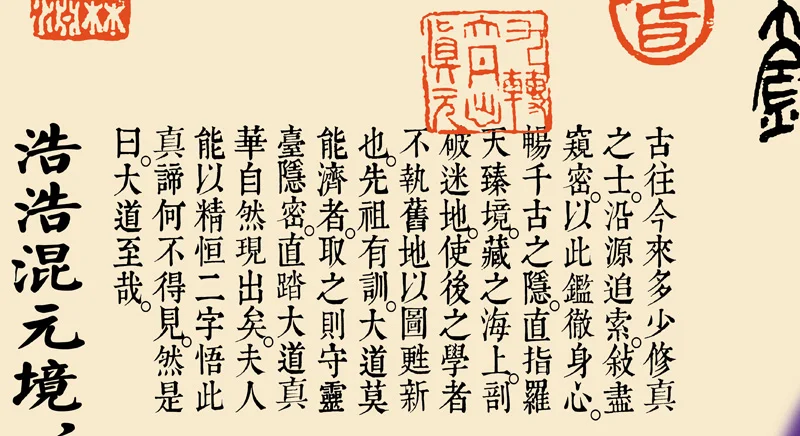 古往今來多少修真
之士。沿源追索。敍盡
窺密。以此鑑徹身心。
暢千古之隱。直指羅
天臻境。藏之海上。剖
破迷地。使後之學者
不執舊地以圖甦新
也。先祖有訓。大道莫
能濟者。取之則守靈
臺隱密。直踏大道真
華自然現出矣。夫人
能以精恒二字悟此
真諦何不得見。然是
曰。大道至哉。
浩浩混元境，